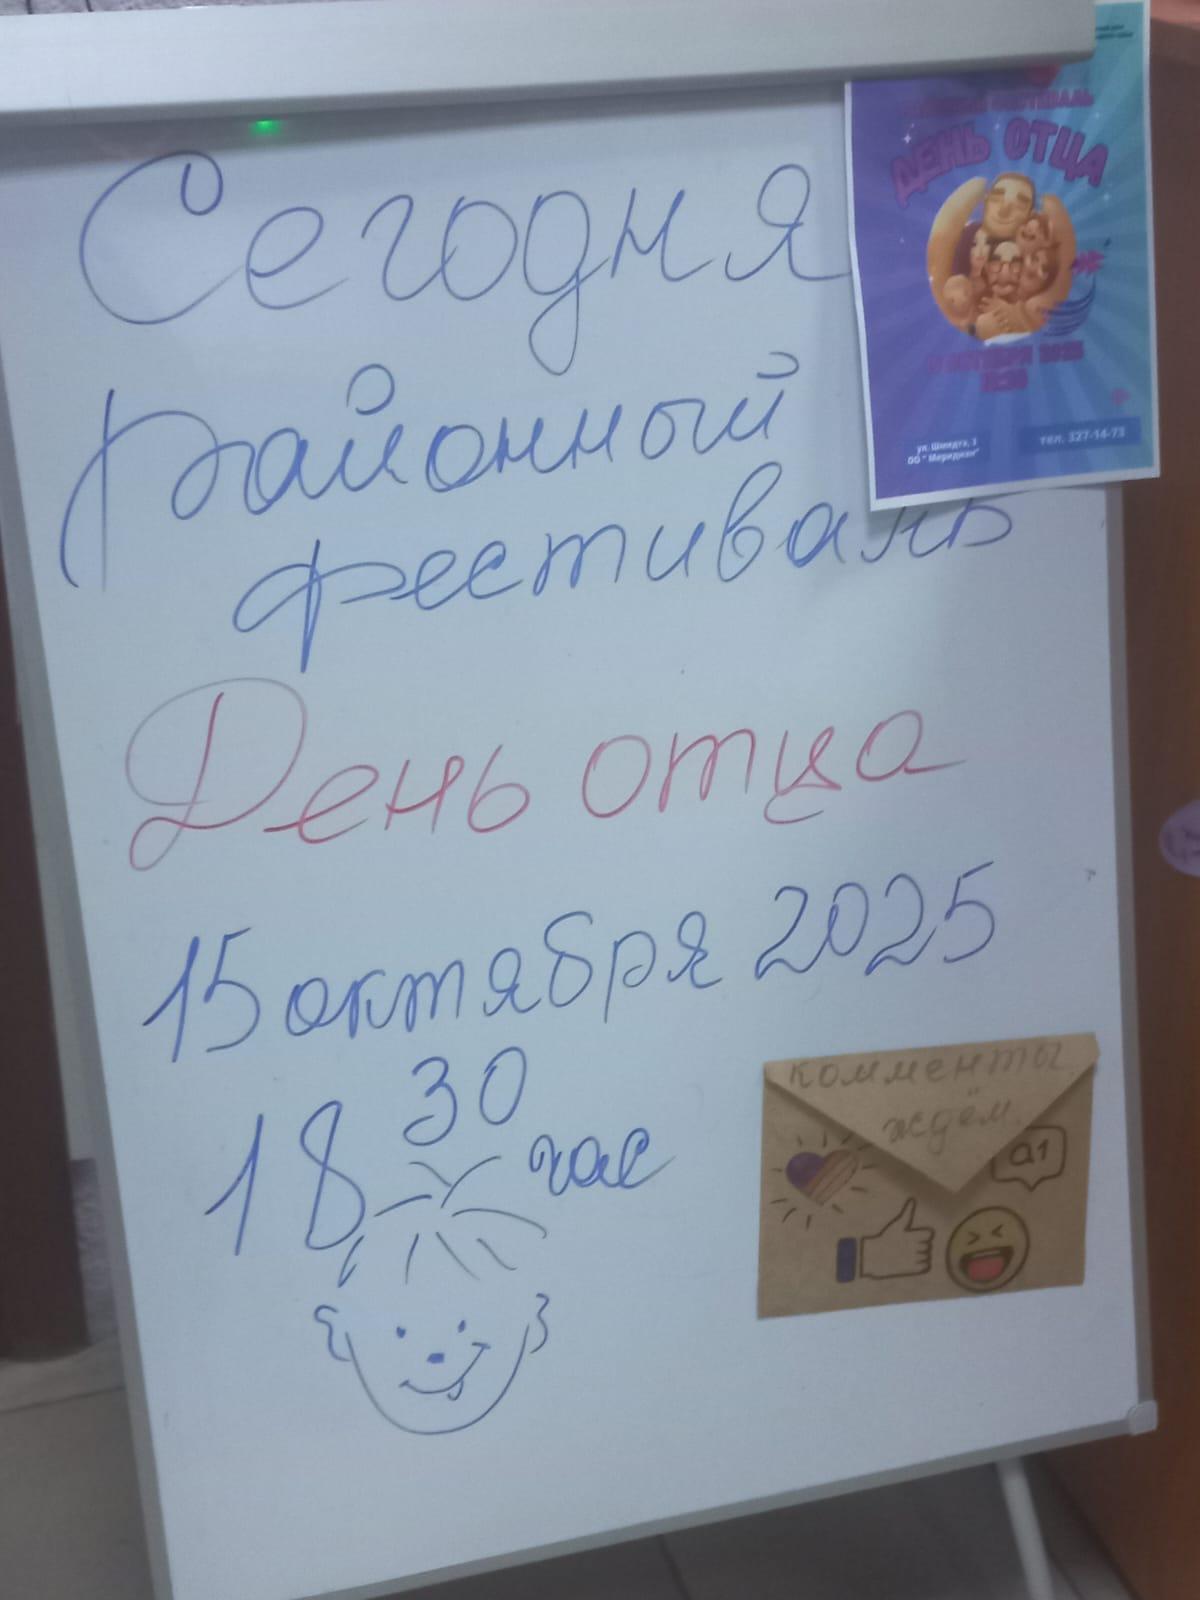 Сегодня
Районный
фестиваль
День отца
15 октября 2025
18 30 час
ФЕСТИВАЛЬ
ДЕНЬ ОТЦА
ОКТЯБРЯ 2025
ул. Шмидта, 3
ОО "Меридиан"
тел. 327-14-73
комменты
ждём